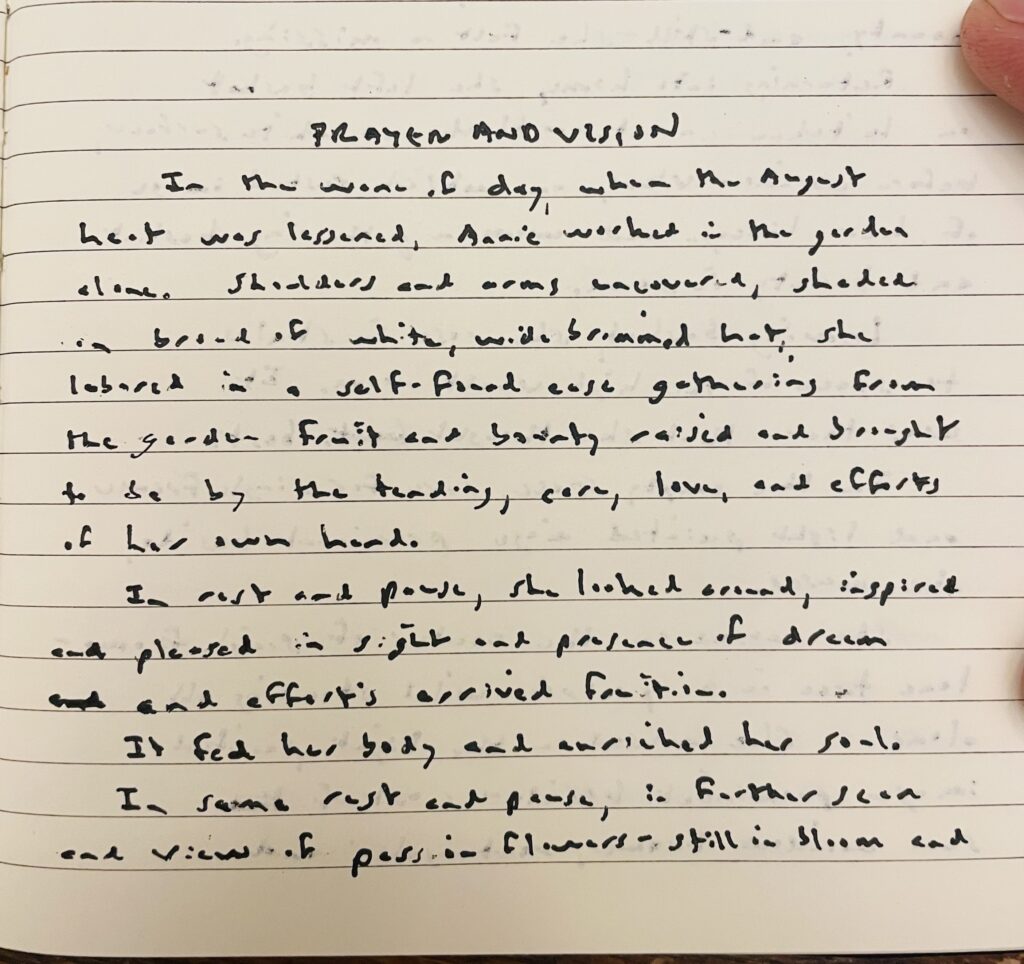 PRAYER AND VISION
In the wane of day, when the August
heat was lessened, Annie worked in the garden
alone. Shoulders and arms uncovered, shaded
in broad of white, wide brimmed hat, she
labored in a self-found ease gathering from
the garden fruit and bounty raised and brought
to be by the tending, care, love, and efforts
of her own hand.
In rest and pause, she looked around, inspired
and pleased in sight and presence of dream
and effort's arrived fruition.
It fed her body and enriched her soul.
In same rest and pause, in further seen
and view of passion flowers - still in bloom and